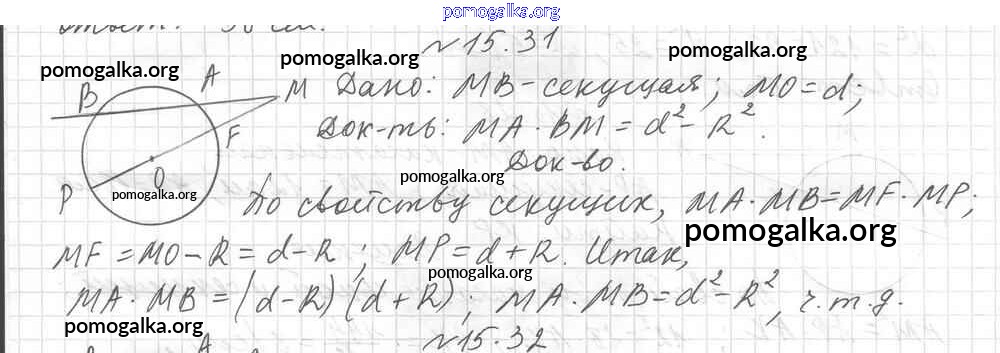 pomogalka.org
Ответ: 30 см.
№15.31
pomogalka.org
pomogalka.org
pomogalka.org
B A M F O P
pomogalka.org
Дано: MB-секущая; MO=d;
Док-ть: MA·BM=d²-R².
Док-во.
pomogalka.org
По свойству секущих, MA·MB=MF·MP;
pomogalka.org
MF=MO-R=d-R; MP=d+R. Итак,
pomogalka.org
MA·MB=(d-R)(d+R); MA·MB=d²-R², ч.т.д.
pomogalka.org
№15.32
A